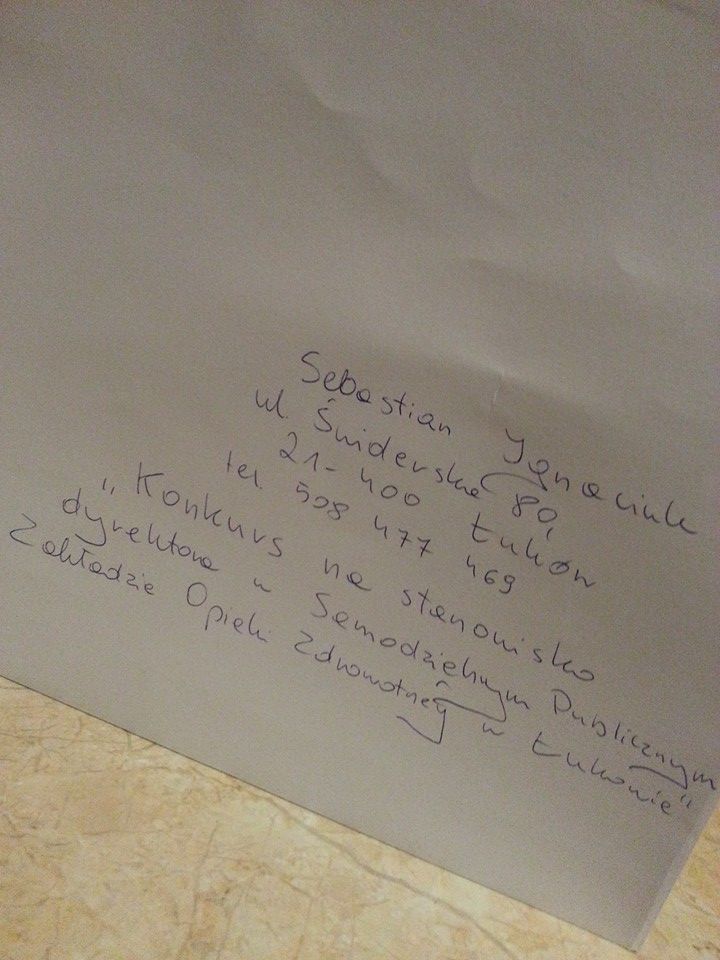 Sebastian Ignaciuk
ul. Świderska 80,
21-400 Łuków
tel. 508 477 469
„Konkurs na stanowisko
dyrektora w Samodzielnym Publicznym
Zakładzie Opieki Zdrowotnej w Łukowie"